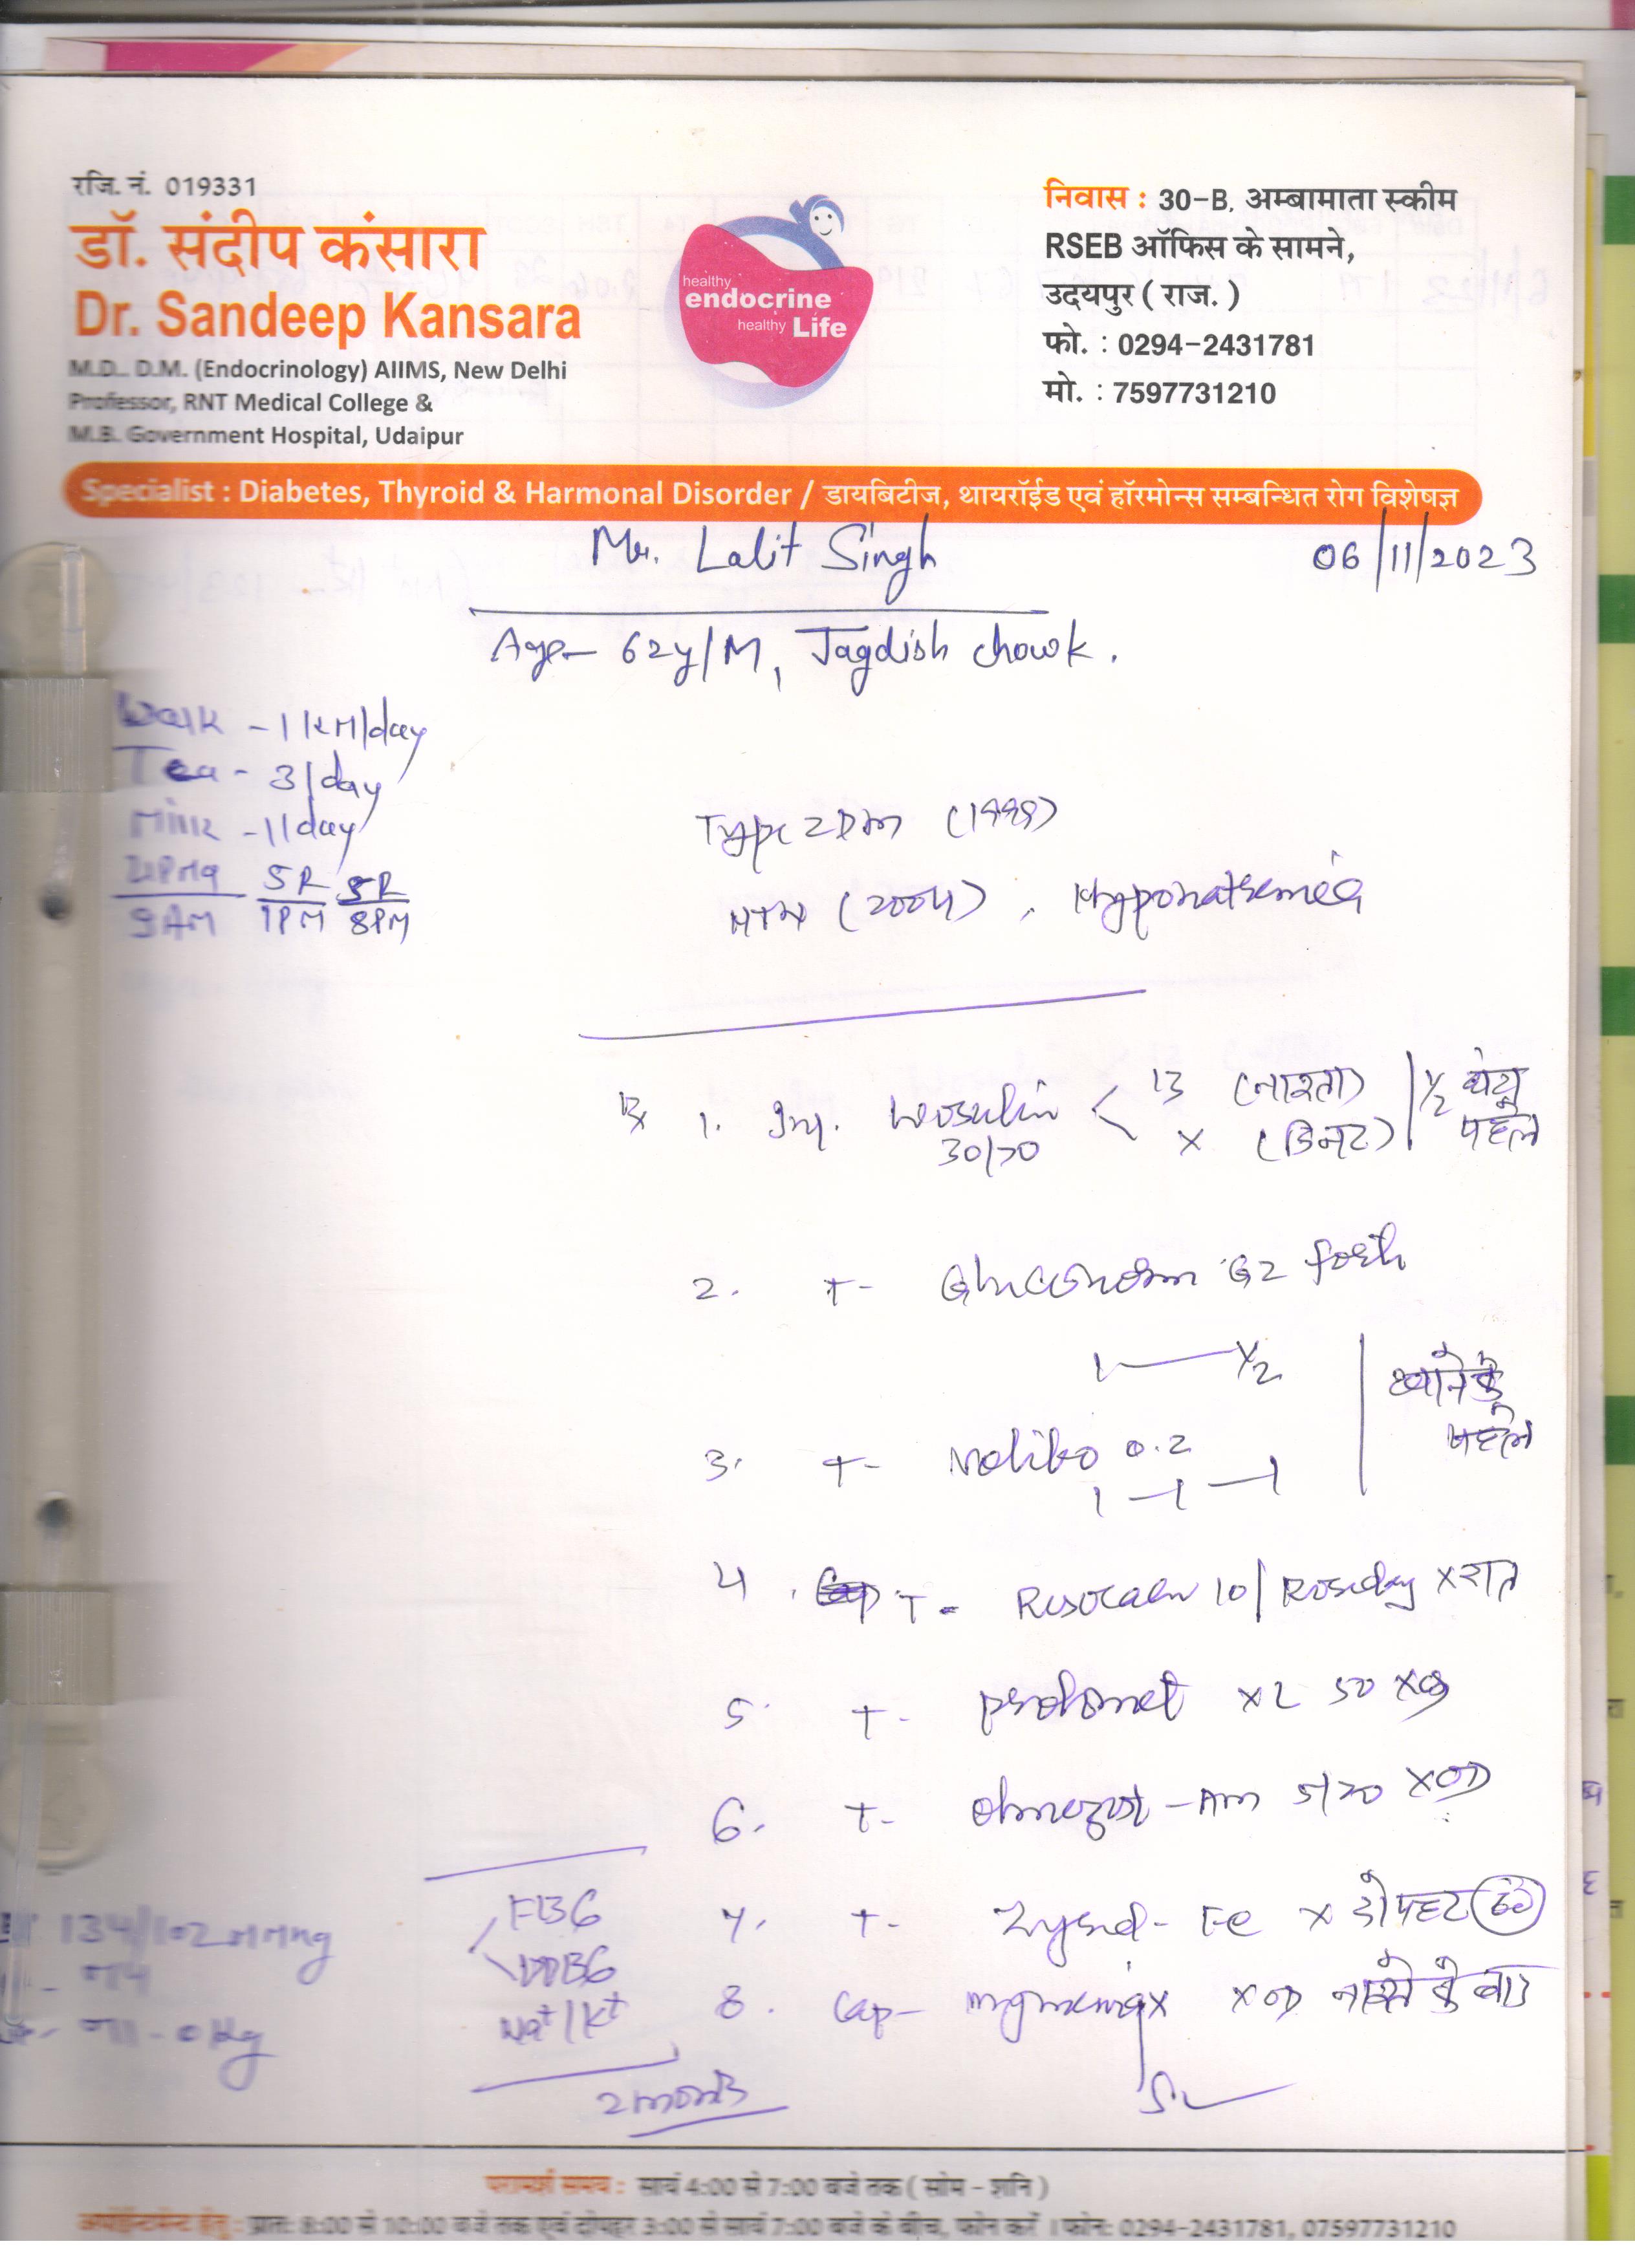 रजि. नं. 019331
डॉ. संदीप कंसारा
Dr. Sandeep Kansara
M.D. D.M. (Endocrinology) AIIMS, New Delhi
Professor, RNT Medical College &
M.B. Government Hospital, Udaipur
healthy
endocrine
healthy Life
निवास : 30-B, अम्बामाता स्कीम
RSEB ऑफिस के सामने,
उदयपुर ( राज. )
फो. : 0294-2431781
मो. : 7597731210
Specialist : Diabetes, Thyroid & Harmonal Disorder / डायबिटीज, थायरॉईड एवं हॉरमोन्स सम्बन्धित रोग विशेषज्ञ
Mr. Lalit Singh 06/11/2023
Age- 62y/M, Jagdish chowk.
Walk - 1 KM/day
Tea - 3/day
Milk - 1/day
9AM 5R/1PM 5R/8PM
Type 2 DM (1998)
HTN (2004), Hyponatremia
Rx 1. Inj. Wosulin 30/70 < 13 (नाश्ता) x (डिनर) | 1/2 घंटा पहले
2. T- Gluconorm G2 forte
1 — 1/2
खाने के पहले
3. T- Volibo 0.2
1 — 1 — 1
4. T- 10/Roseday x रात
5. T- Prolomet XL 50 x
6. T- Olmezest-AM 5/20 x OD
7. T- Fe x दोपहर
8. Cap- x OD नाश्ते के बाद
134/102 mmHg
FBG
PPBG
Na+/K+
2 month
परामर्श समय : सायं 4:00 से 7:00 बजे तक ( सोम - शनि )
अपॉइन्टमेन्ट हेतु : प्रातः 8:00 से 10:00 बजे तक एवं दोपहर 3:00 से सायं 7:00 बजे के बीच, फोन करें । फोन: 0294-2431781, 07597731210